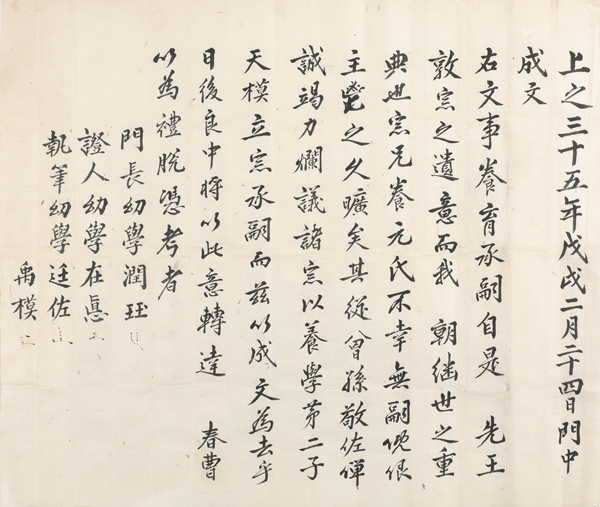 上之三十五年戊戌二月二十四日門中
成文
右文事養育承嗣自是 先王
敦宗之遺意而我 朝繼世之重
典也宗兄養元氏不幸無嗣俛俍
主鬯之久曠矣其從曾孫敬佐憚
誠竭力爛議諸宗以養學第二子
天模立宗承嗣而玆以成文為去乎
日後良中將以此意轉達 春曹
以為禮脫憑考者
門長幼學潤珏
證人幼學在悳
執筆幼學廷佐
禹模